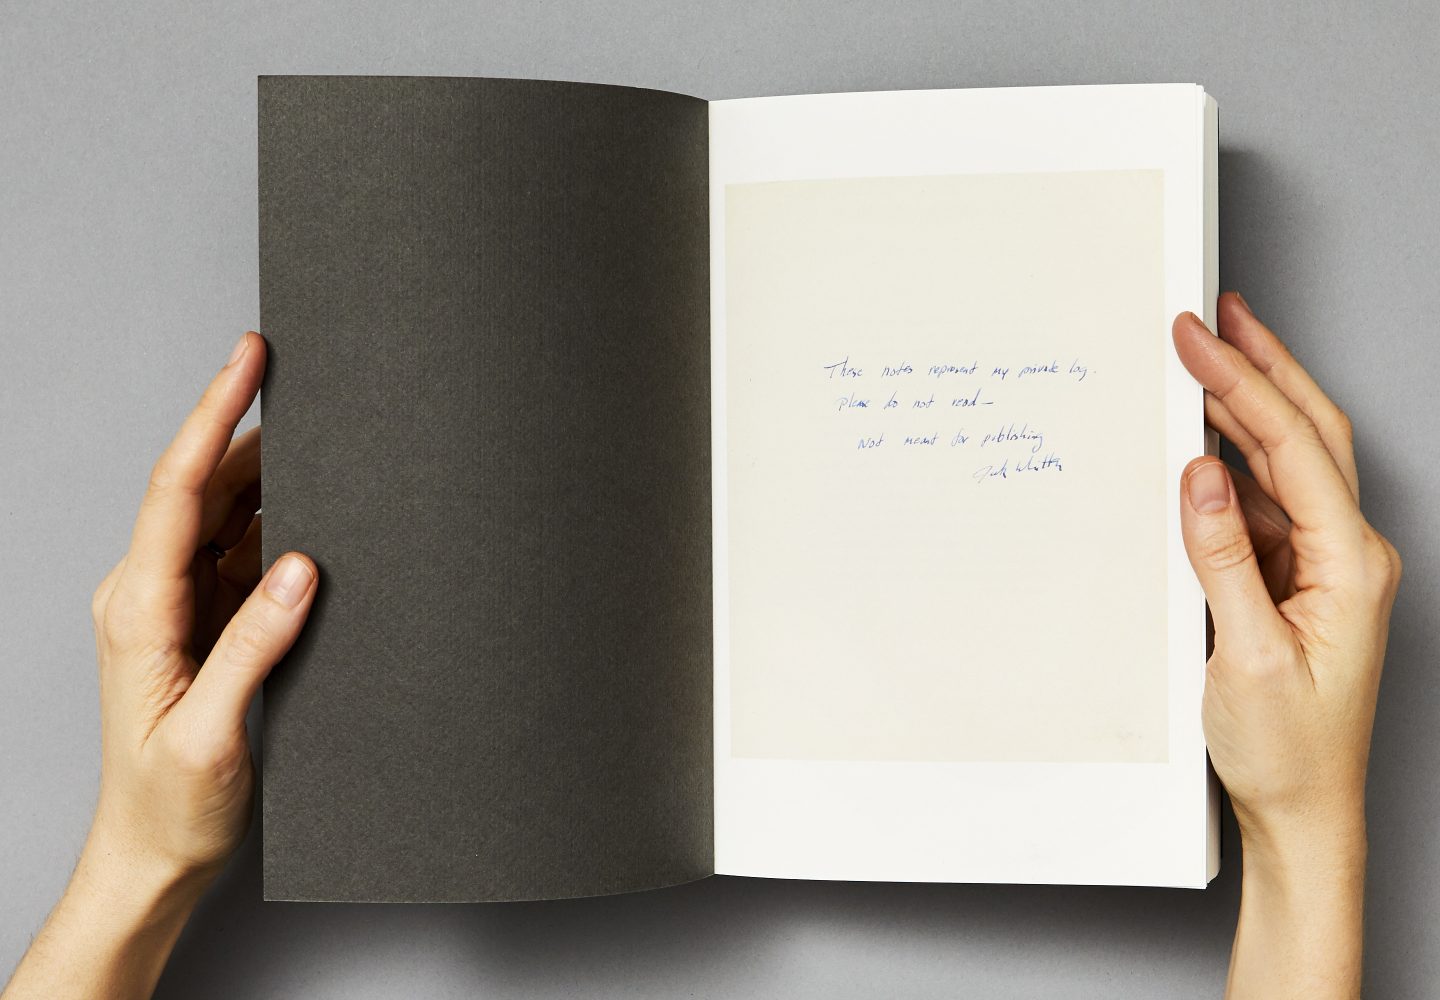 These notes represent my private log.
Please do not read—
Not meant for publishing
Jack Whitten